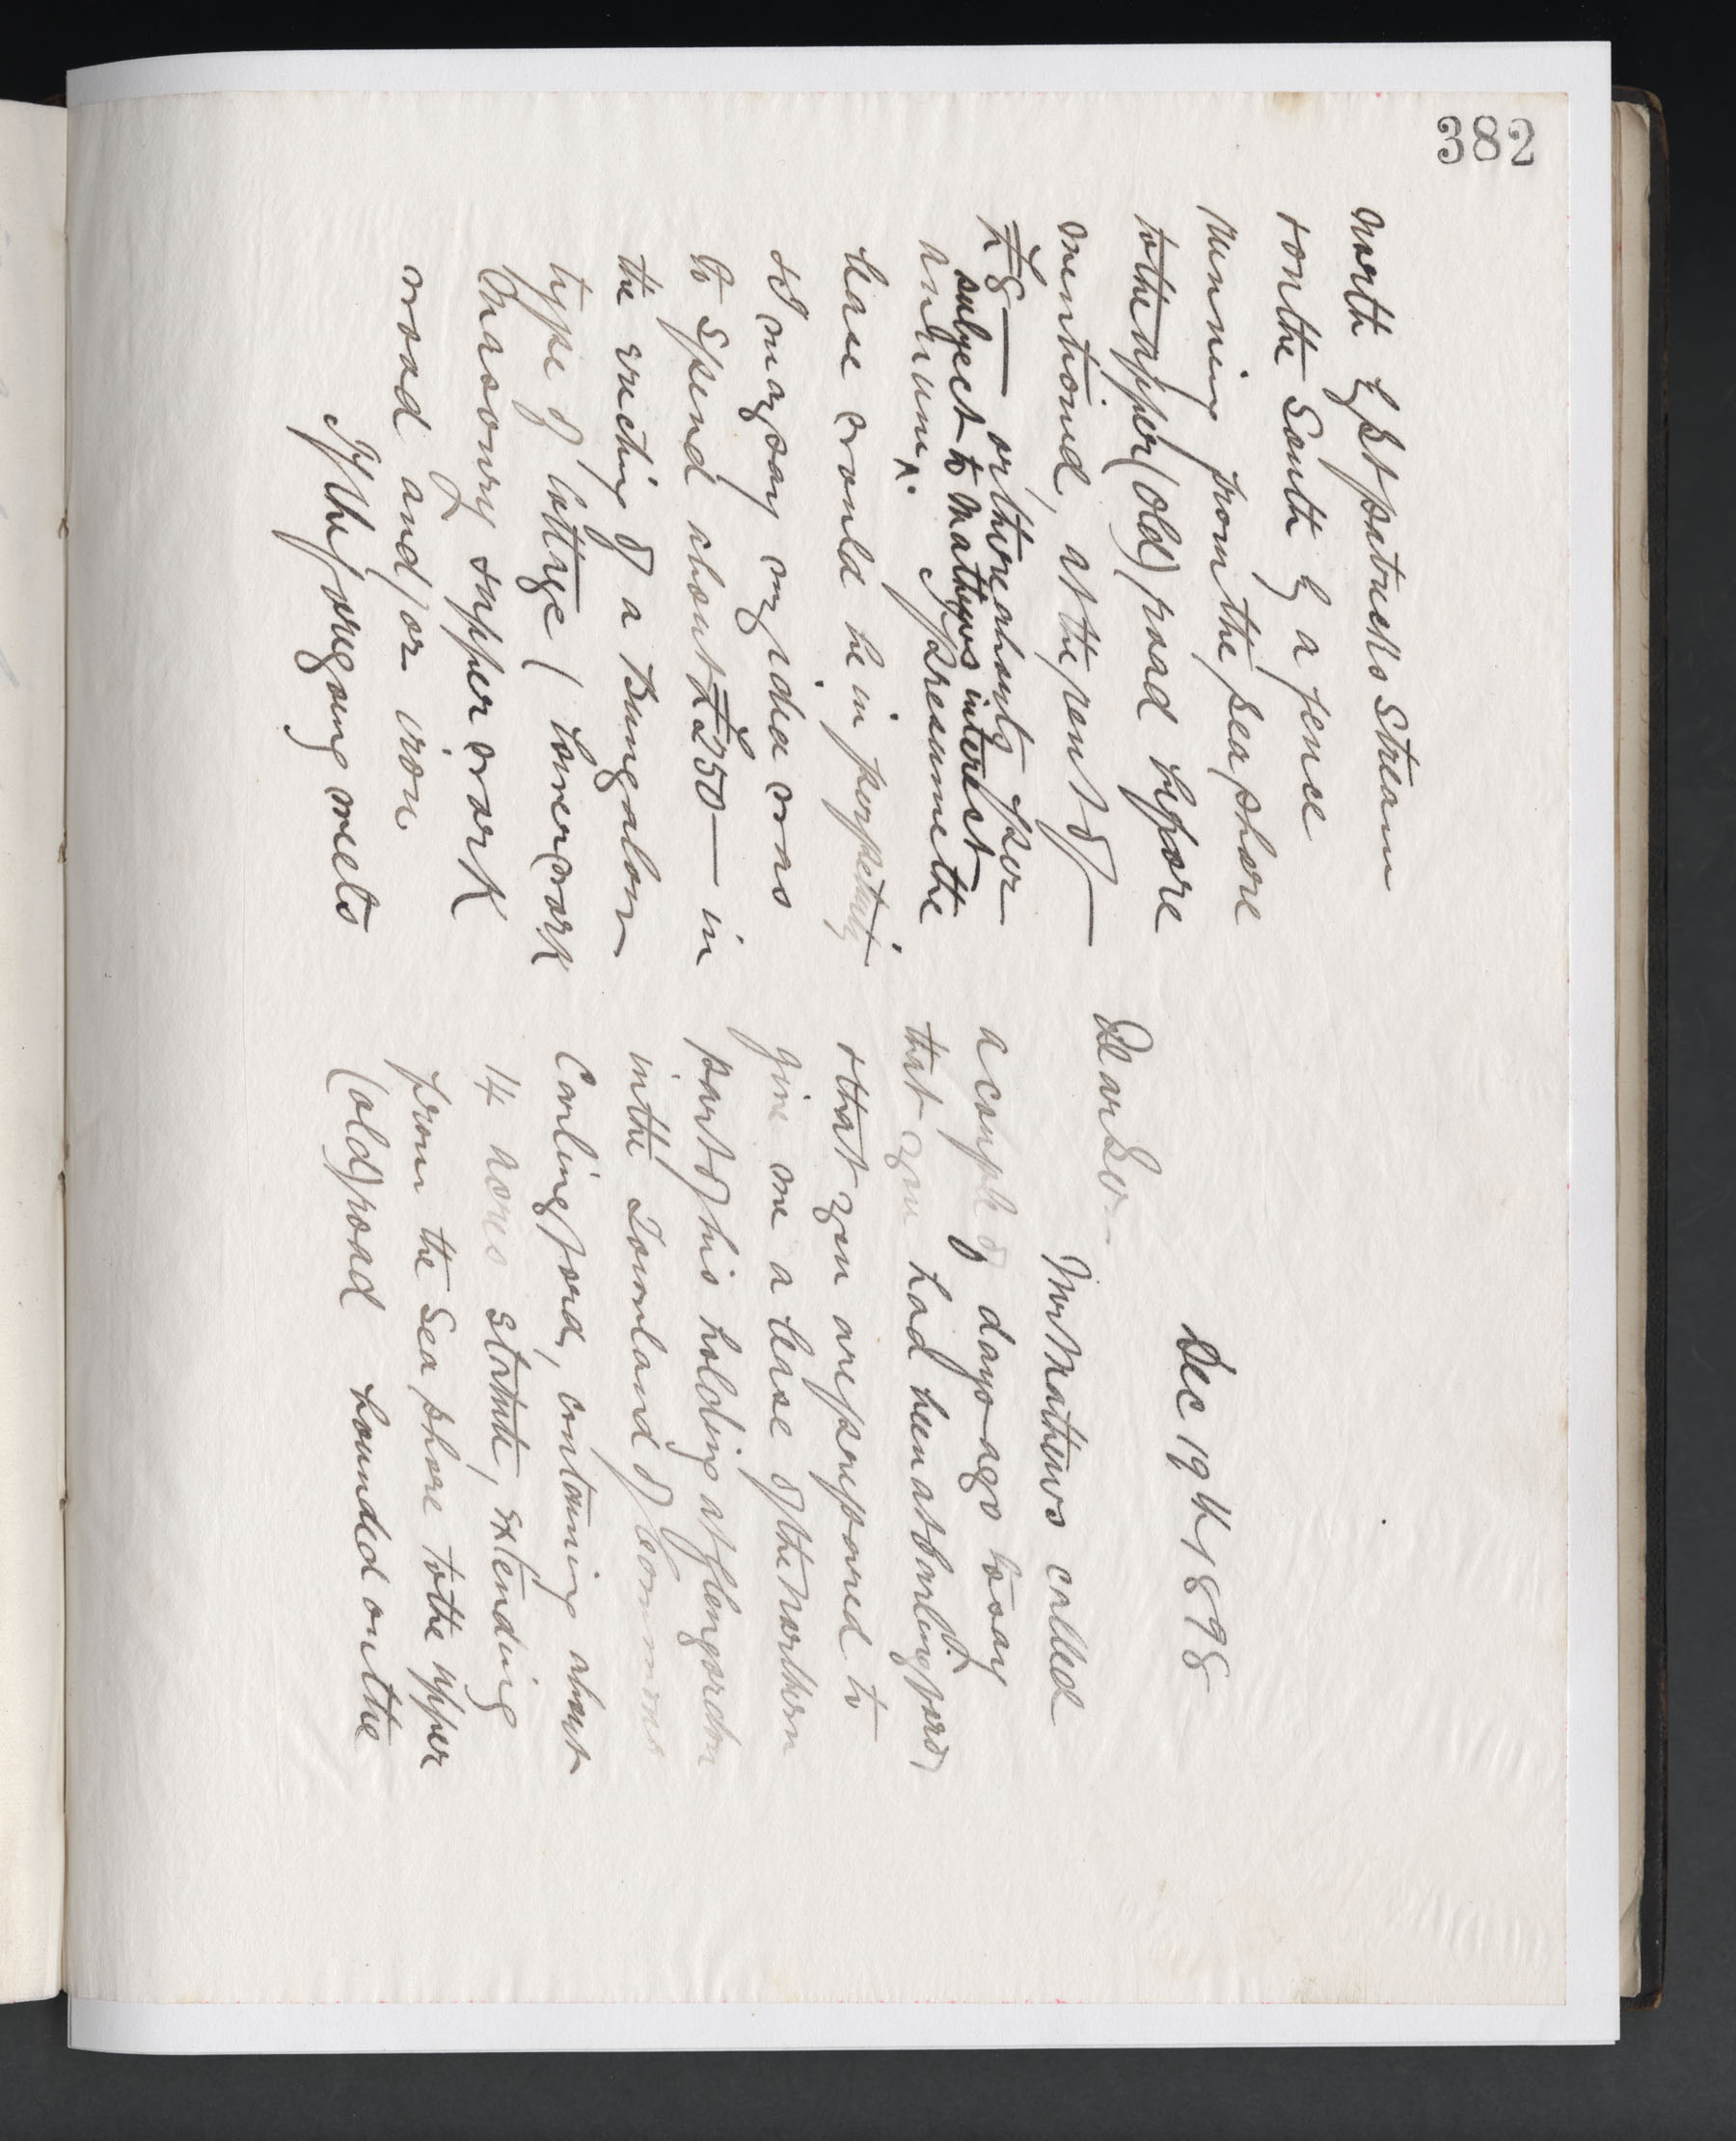 382
Dec 19th 1898
Dear Sir
Mr Mathews called
a couple of days ago to say
that you had been at Carlingford
& that you are prepared to
give me a lease of the Northern
part of his holding at
in the Townland of Commons
Carlingford, containing about
14 acres statute, extending
from the Sea shore to the upper
(old) road bounded on the
North by St patricks Stream
& on the South by a fence
running from the sea shore
to the upper (old) road before
mentioned, at the rent of
£8 — or thereabouts per
subject to Mathews interest
annum ^. I presume the
lease would be in perpetuity
& I may say my idea was
to spend about £250 — in
the erecting of a Bungalow
type of Cottage (lower work
Masonry & upper work
wood and/or iron.
If the foregoing meets